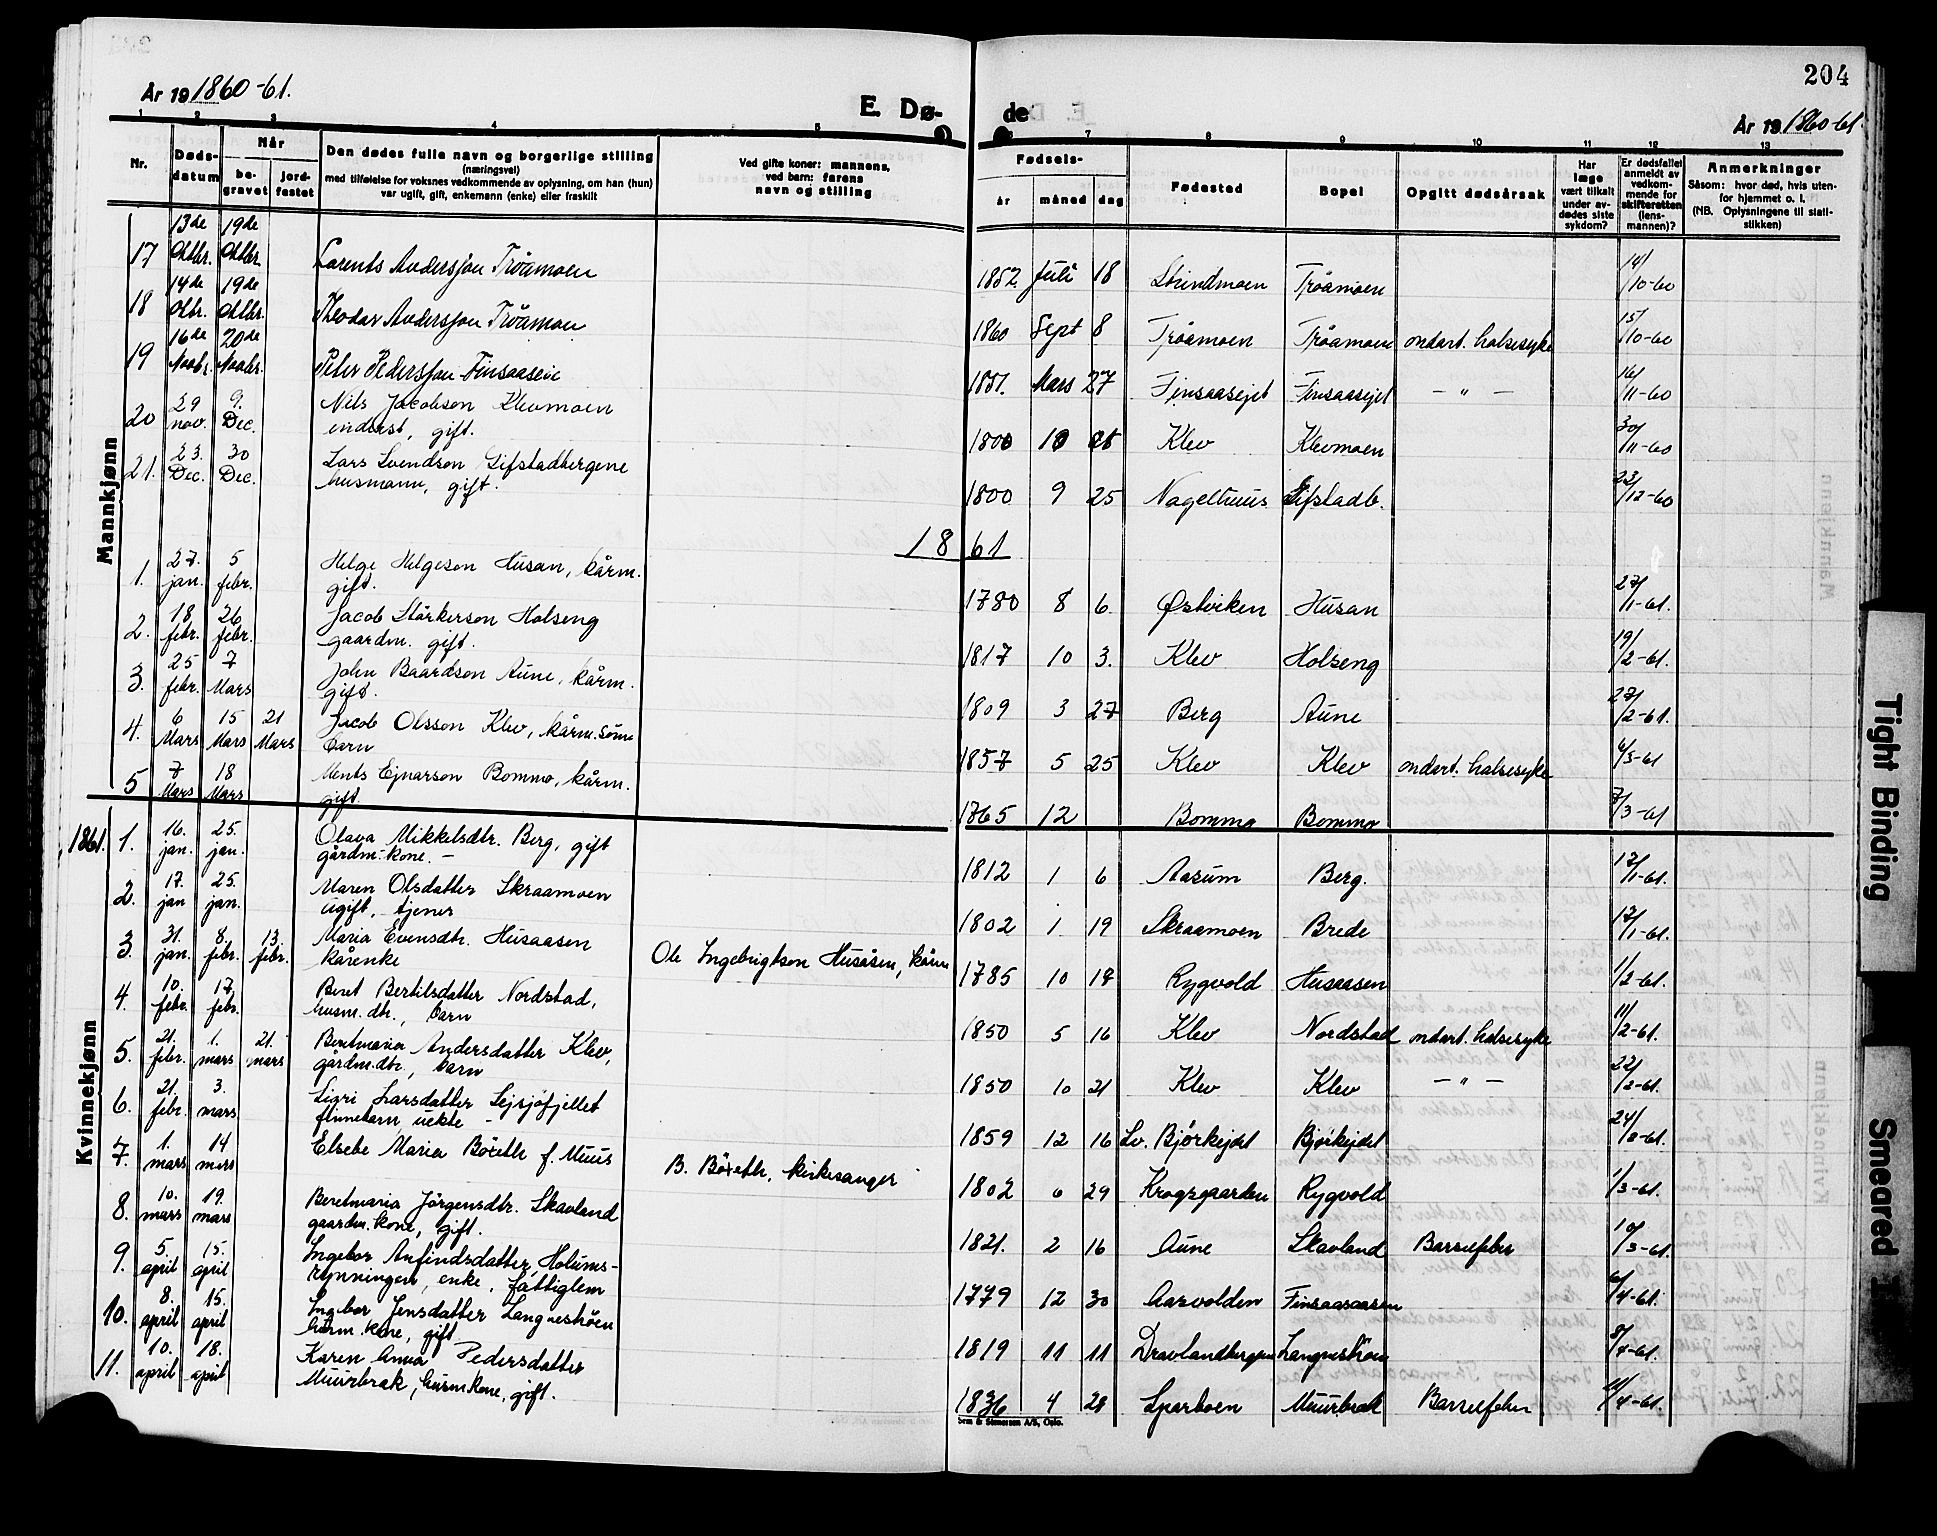 204
År 19 1860-61.
E. Dø-
de
År 19 1860-61.
1 2 3 4 5 6 7 8 9 10 11 12 13
Nr.
Døds-
datum
Når
be-
gravet
jord-
festet
Den dødes fulle navn og borgerlige stilling
(næringsvei)
med tilføielse for voksnes vedkommende av oplysning, om han (hun)
var ugift, gift, enkemann (enke) eller fraskilt
Ved gifte koner: mannens,
ved barn: farens
navn og stilling
Fødsels-
år
måned
dag
Fødested
Bopel
Opgitt dødsårsak
Har
læge
vært tilkalt
under av-
dødes siste
sykdom?
Er dødsfallet
anmeldt av
vedkom-
mende for
skifteretten
(lens-
mannen)?
Anmerkninger
Såsom: hvor død, hvis uten-
for hjemmet o. l.
(NB. Oplysningene til stati-
stikken)
Mannkjønn
17 13de Oktbr. 19de Oktbr. Lorents Andersson Trøamoen 1852 Juli 18 Strindmoen Trøamoen 14/10-60
18 14de Oktbr. 19de Oktbr. Theodor Andersson Trøamoen 1860 Sept 8 Trøamoen Trøamoen ondart. halsesyke 15/10-60
19 16de Novbr. 20de Novbr. Peter Pedersson Finsaaseie 1851. Mars 27 Finsaasejet Finsaasejet - " - 16/11-60
20 29 nov. 9. Dec. Nils Jacobson Klevmoen
inderst, gift. 1800 10 28 Klev Klevmoen 30/11-60
21. 23. Dec. 30 Dec. Lars Svendson Gifstadbergene
husmann, gift. 1800 9 25 Nagelhuus Gifstadb. 23/12-60
1861
1. 27. jan. 5 febr. Helge Helgeson Husan, kårm.
gift. 1780 8 6. Østviken Husan 27/1-61.
2. 18. febr. 26 febr. Jacob Størkerson Holseng
gaardm. gift. 1817 10 3. Klev Holseng 19/2-61.
3. 25 febr. 7 Mars John Baardson Aune, kårm.
gift. 1809 3 27 Berg Aune 27/2-61.
4. 6 Mars 15 Mars 21 Mars Jacob Olsson Klev, kårm. sønn
barn 1857 5 25 Klev Klev ondart. halsesyke 6/3-61
5 7 Mars 18 Mars Ments Ejnarson Bommo, kårm.
gift 1765 12 Bommo Bommo 7/3-61
Kvinnekjønn
1861. 1. 16. jan. 25. jan. Olava Mikkelsdtr. Berg, gift
gårdm. kone. - 1812 1 6 Aasum Berg. 17/1-61.
2. 17. jan 25. jan. Maren Olsdatter Skraamoen
ugift, tjener 1802 1 19 Skraamoen Brede 17/1-61.
3. 31. jan. 8. febr. 13. febr. Maria Evensdtr. Husaasen
kårenke Ole Ingebrigtson Husåsen, kårm 1785 10 18 Rygvold Husaasen 1/2-61.
4. 10. febr. 17. febr. Beret Bertilsdatter Nordstad,
husm. dtr., barn 1850 5 16 Klev Nordstad ondart. halsesyke 11/2-61.
5. 21. febr. 1. mars 21. mars Beretmaria Andersdatter Klev,
gårdm. dtr., barn 1850 10 21 Klev Klev - " - 22/2-61.
6. 21. febr. 3. mars Sigri Larsdatter Sejsjøfjellet
finnebarn, uekte - 1859 12 16 Lv. Bjørkejdet Bjørkejdet 24/2-61.
7. 1. mars 14 mars Elsebe Maria Böxeth f. Muus B. Böxeth, kirkesanger 1802 6 29 Krogsgaarden Rygvold 1/3-61.
8. 10. mars 19. mars Beretmaria Jörgensdtr. Skavland
gaardm. kone, gift. 1821. 2 16 Aune Skavland Barselfeber 10/3-61.
9. 5. april 15. april Ingebor Anfindsdatter, Holums-
rynningen, enke, fattiglem 1779 12 30 Aasvolden Finsaasaasen 6/4-61.
10. 8. april 15. april Ingebor Jensdatter Langneshöen
husm. kone, gift 1819 11 11 Dravlandbergene Langneshöen 8/4-61.
11. 10. april 18. april Karen Anna Pedersdatter
Muurbrak, husmkone, gift. 1836 4 28 Sparboen Muurbrak Barselfeber 11/4-61.
Sem & Stenersen A/S, Oslo.
Tight Binding
Smeared